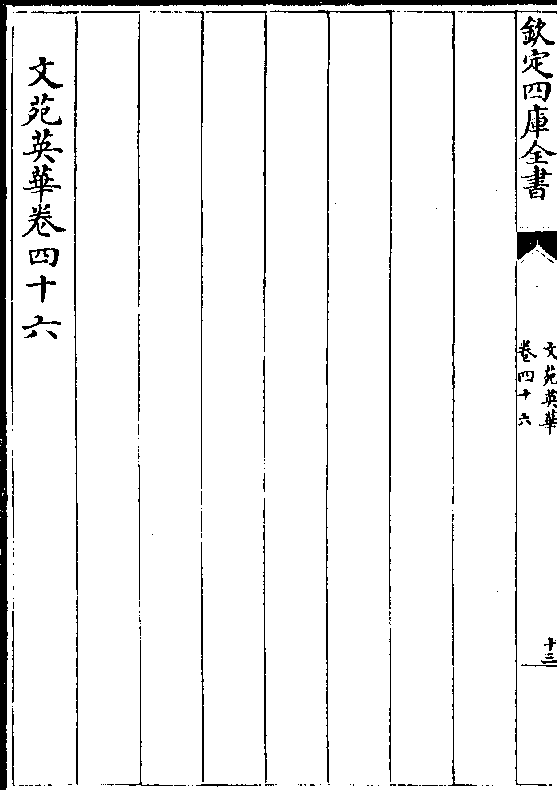 欽定四庫全書
文苑英華
卷四十六
十三
文苑英華卷四十六